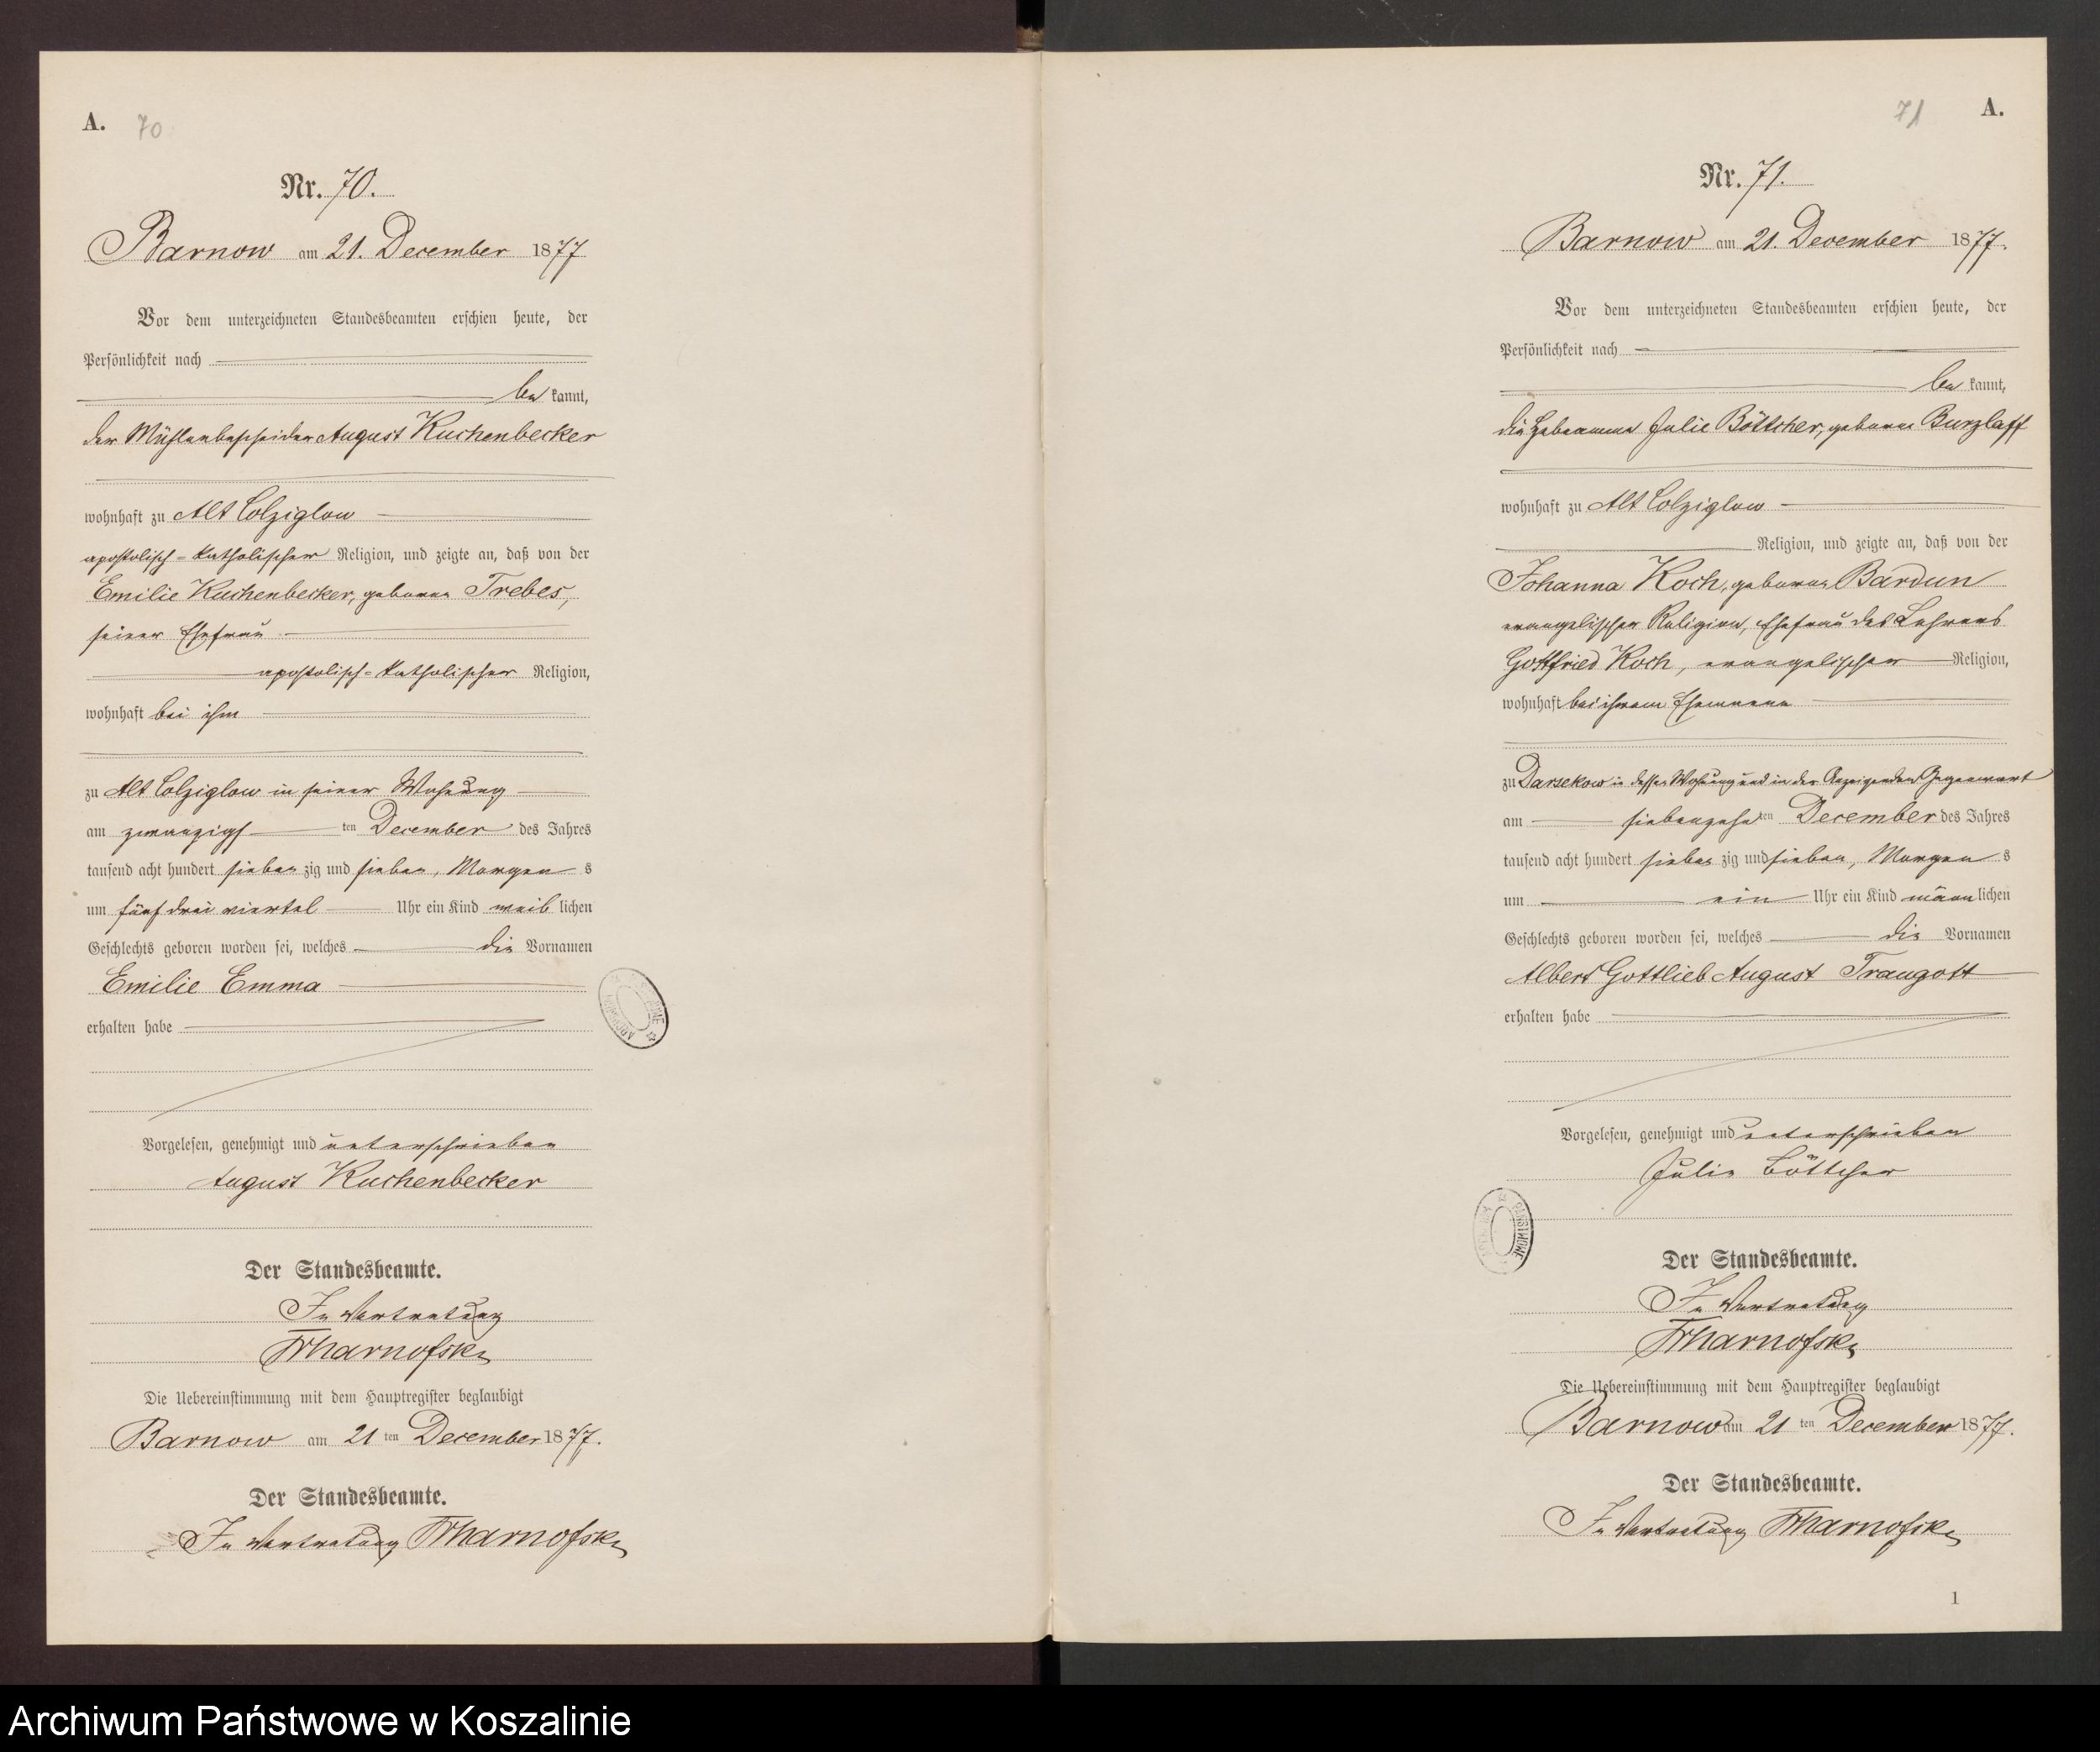 A. 70
Nr. 70.
Barnow am 21. December 1877
Vor dem unterzeichneten Standesbeamten erschien heute, der
Persönlichkeit nach
be kannt,
der Mühlenbescheider August Kuchenbecker
wohnhaft zu Alt Colziglow
apostolisch-katholischer Religion, und zeigte an, daß von der
Emilie Kuchenbecker, geborene Trebes,
seiner Ehefrau
apostolisch-katholischer Religion,
wohnhaft bei ihm
zu Alt Colziglow in seiner Wohnung
am zwanzigs ten December des Jahres
tausend acht hundert sieben zig und sieben, Morgen s
um fünf drei viertel Uhr ein Kind weib lichen
Geschlechts geboren worden sei, welches die Vornamen
Emilie Emma
erhalten habe
Vorgelesen, genehmigt und unterschrieben
August Kuchenbecker
Der Standesbeamte.
In Vertretung
Die Uebereinstimmung mit dem Hauptregister beglaubigt
Barnow am 21 ten December 1877.
Der Standesbeamte.
In Vertretung
71 A.
Nr. 71.
Barnow am 21. December 1877.
Vor dem unterzeichneten Standesbeamten erschien heute, der
Persönlichkeit nach
be kannt,
die Hebeamme Julie Böttcher, geborene Burzlaff
wohnhaft zu Alt Colziglow
Religion, und zeigte an, daß von der
Johanna Koch, geborene Bardun
evangelischer Religion, Ehefrau des Lehrers
Gottfried Koch, evangelischer Religion,
wohnhaft bei ihrem Ehemanne
zu Darsekow in dessen Wohnung und in der Anzeigenden Gegenwart
am siebenzehn ten December des Jahres
tausend acht hundert sieben zig und sieben, Morgen s
um ein Uhr ein Kind männ lichen
Geschlechts geboren worden sei, welches die Vornamen
Albert Gottlieb August Traugott
erhalten habe
Vorgelesen, genehmigt und unterschrieben
Julie Böttcher
Der Standesbeamte.
In Vertretung
Die Uebereinstimmung mit dem Hauptregister beglaubigt
Barnow am 21 ten December 1877.
Der Standesbeamte.
In Vertretung
1
Archiwum Państwowe w Koszalinie